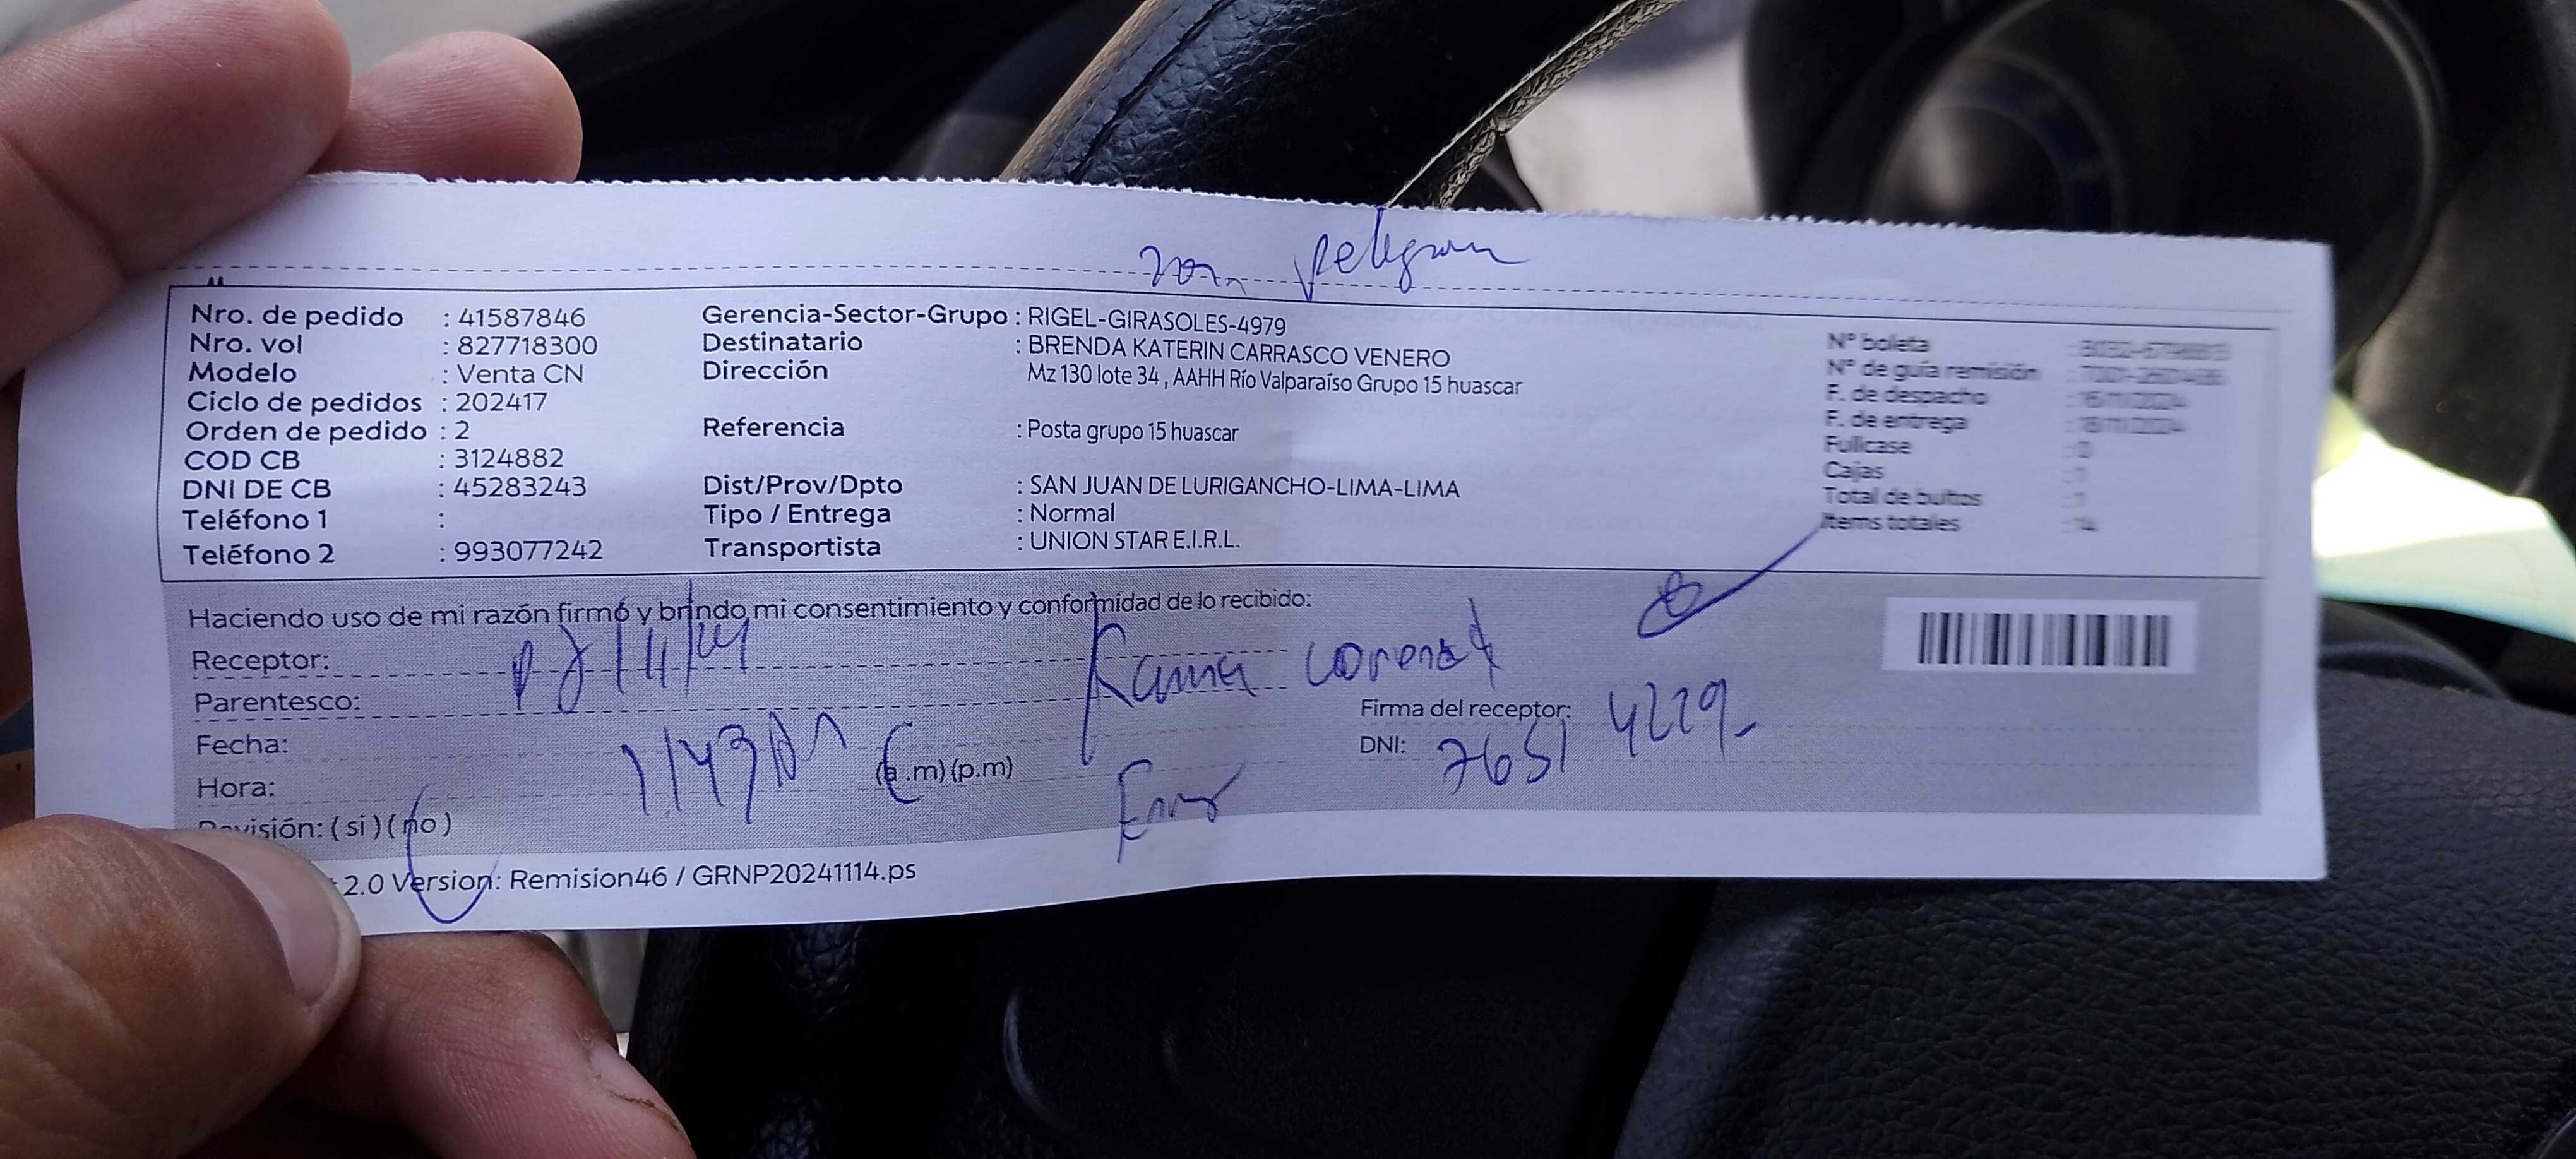 Nro. de pedido : 41587846
Nro. vol : 827718300
Modelo : Venta CN
Ciclo de pedidos : 202417
Orden de pedido : 2
COD CB : 3124882
DNI DE CB : 45283243
Teléfono 1 :
Teléfono 2 : 993077242
Gerencia-Sector-Grupo : RIGEL-GIRASOLES-4979
Destinatario : BRENDA KATERIN CARRASCO VENERO
Dirección Mz 130 lote 34 , AAHH Río Valparaíso Grupo 15 huascar
Referencia : Posta grupo 15 huascar
Dist/Prov/Dpto : SAN JUAN DE LURIGANCHO-LIMA-LIMA
Tipo / Entrega : Normal
Transportista : UNION STAR E.I.R.L.
N° boleta :
N° de guía remisión :
F. de despacho :
F. de entrega :
Fullcase :
Cajas : 1
Total de bultos : 1
Items totales : 14
Haciendo uso de mi razón firmó y brindo mi consentimiento y conformidad de lo recibido:
Receptor:
Parentesco:
Fecha:
Hora: (a .m) (p.m)
(si) (no)
Firma del receptor:
DNI: 7651 4229
2.0 Version: Remision46 / GRNP20241114.ps